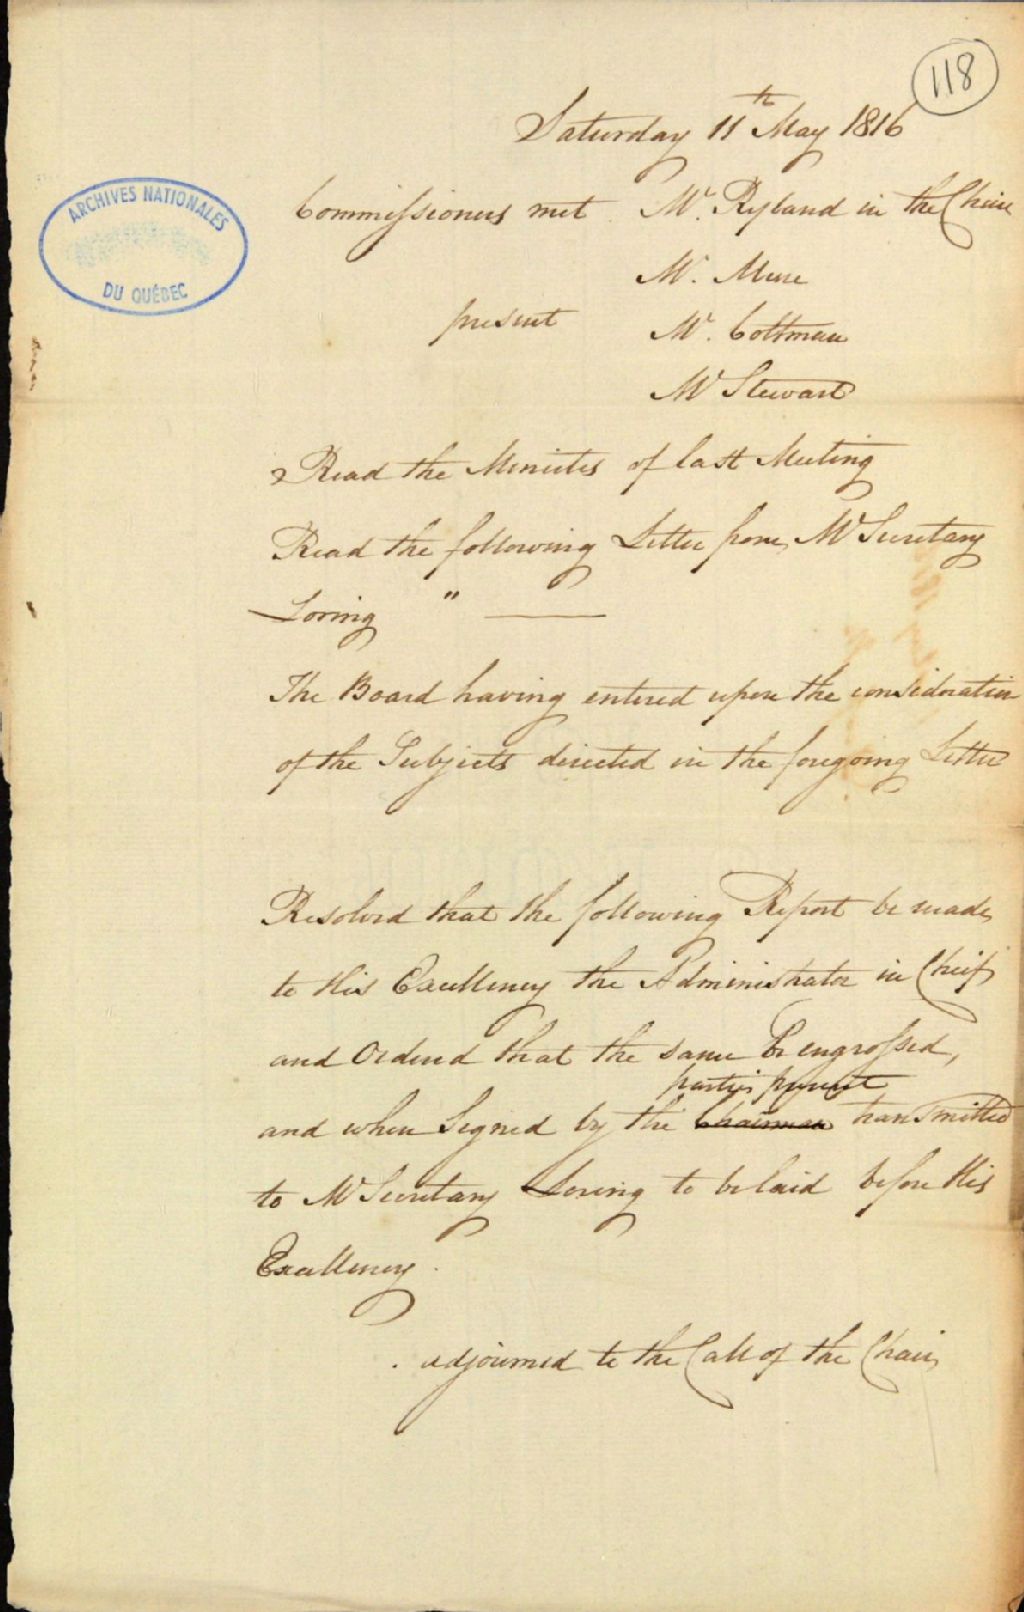 118
Saturday 11th May 1816
ARCHIVES NATIONALES
DU QUÉBEC
Commissioners met Mr. Ryland in the Chair
Mr. Mure
present Mr. Coltman
Mr Stewart
Read the Minutes of last Meeting
Read the following Letter from Mr Secretary
Loring "
The Board having entered upon the consideration
of the Subjects directed in the foregoing Letter
Resolved that the following Report be made
to His Excellency the Administrator in Cheif
and Ordered that the same be engrossed,
parties present
and when Signed by the Chairman transmitted
to Mr Secretary Loring to be laid before His
Excellency.
adjourned to the Call of the Chair